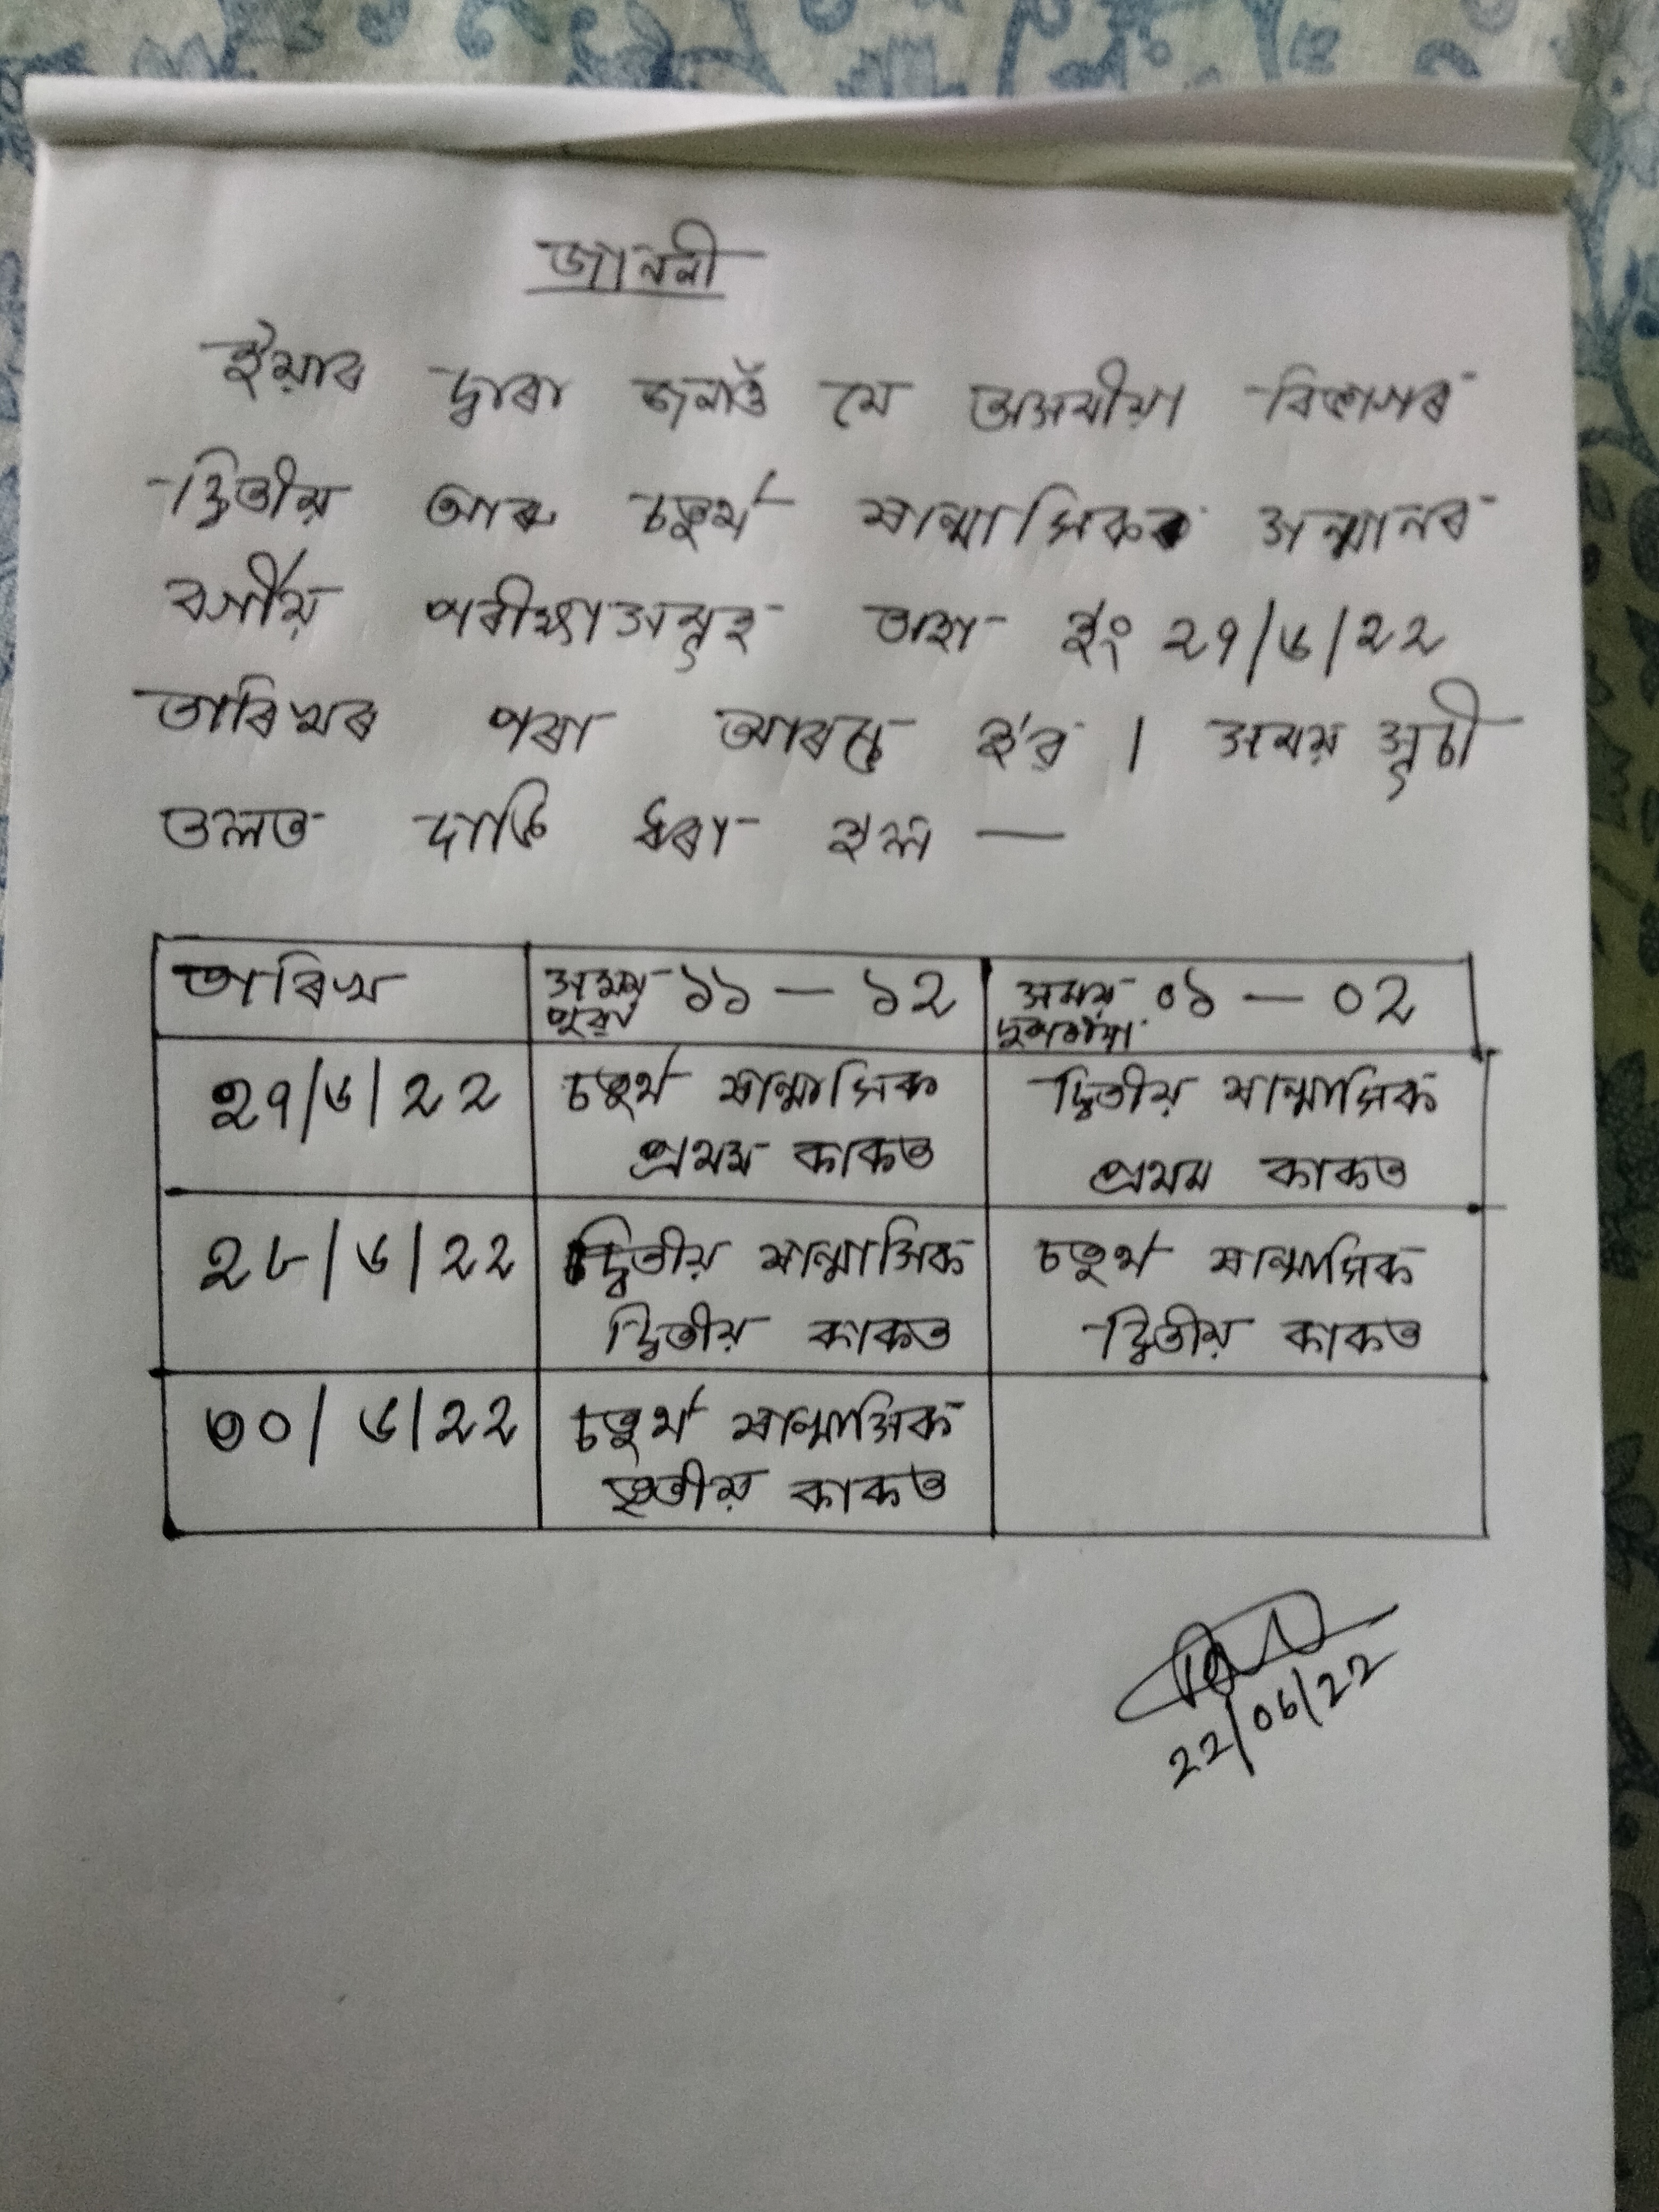 জাননী
ইয়াৰ দ্বাৰা জনাওঁ যে অসমীয়া বিভাগৰ
দ্বিতীয় আৰু চতুৰ্থ ষান্মাসিকৰ সন্মানৰ
বৰ্গীয় পৰীক্ষাসমূহ অহা ইং ২৭/৬/২২
তাৰিখৰ পৰা আৰম্ভ হ'ব । সময় সূচী
তলত দাঙি ধৰা হ'ল —
তাৰিখ
সময় ১১ — ১২
পুৱা
সময় ০১ — ০২
দুপৰীয়া
২৭/৬/২২
চতুৰ্থ ষান্মাসিক
প্ৰথম কাকত
দ্বিতীয় ষান্মাসিক
প্ৰথম কাকত
২৮/৬/২২
দ্বিতীয় ষান্মাসিক
দ্বিতীয় কাকত
চতুৰ্থ ষান্মাসিক
দ্বিতীয় কাকত
৩০/৬/২২
চতুৰ্থ ষান্মাসিক
তৃতীয় কাকত
22/06/22